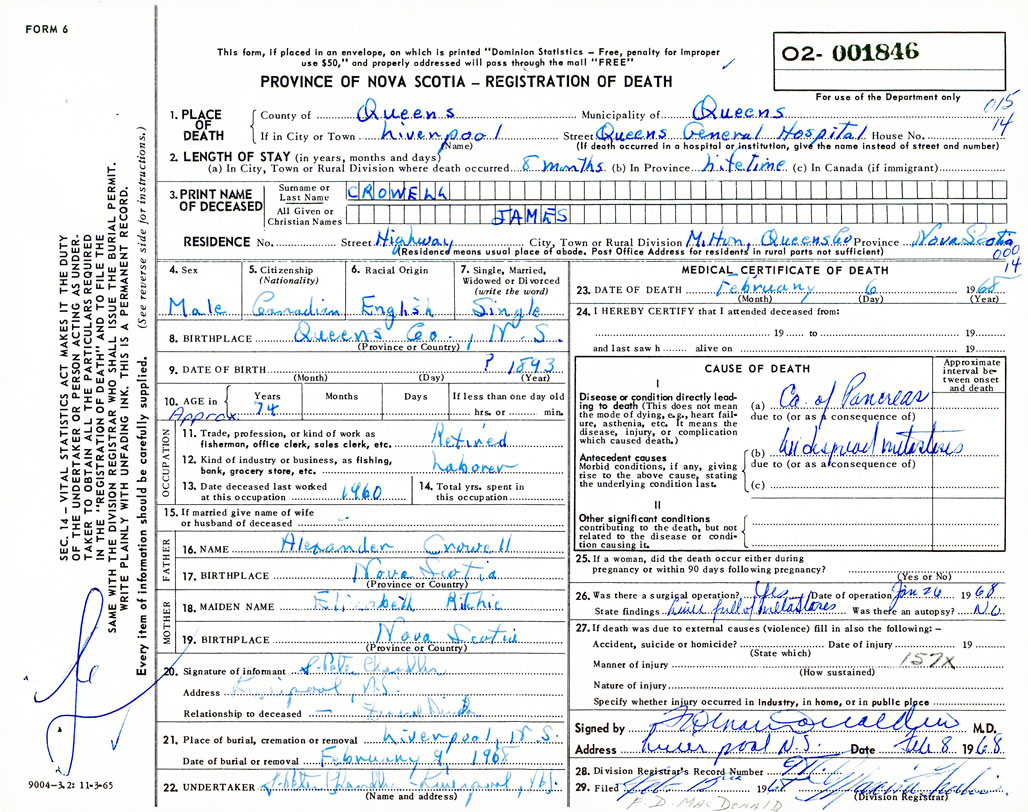 FORM 6
This form, if placed in an envelope, on which is printed "Dominion Statistics – Free, penalty for improper
use $50," and properly addressed will pass through the mail "FREE"
O2- 001846
PROVINCE OF NOVA SCOTIA – REGISTRATION OF DEATH
For use of the Department only
015
14
1. PLACE OF DEATH
County of Queens Municipality of Queens
If in City or Town Liverpool Street Queens General Hospital House No.
(Name) (If death occurred in a hospital or institution, give the name instead of street and number)
2. LENGTH OF STAY (in years, months and days)
(a) In City, Town or Rural Division where death occurred 8 months (b) In Province Lifetime (c) In Canada (if immigrant)
3. PRINT NAME OF DECEASED
Surname or Last Name CROWELL
All Given or Christian Names JAMES
RESIDENCE No. Street Highway City, Town or Rural Division Milton, Queens Co Province Nova Scotia
(Residence means usual place of abode. Post Office Address for residents in rural parts not sufficient)
000
14
4. Sex Male
5. Citizenship (Nationality) Canadian
6. Racial Origin English
7. Single, Married, Widowed or Divorced (write the word) Single
8. BIRTHPLACE Queens Co., N.S.
(Province or Country)
9. DATE OF BIRTH ? 1893
(Month) (Day) (Year)
10. AGE in Approx. Years 74 Months Days If less than one day old hrs. or min.
OCCUPATION
11. Trade, profession, or kind of work as fisherman, office clerk, sales clerk, etc. Retired
12. Kind of industry or business, as fishing, bank, grocery store, etc. Laborer
13. Date deceased last worked at this occupation 1960
14. Total yrs. spent in this occupation
15. If married give name of wife or husband of deceased
FATHER
16. NAME Alexander Crowell
17. BIRTHPLACE Nova Scotia
(Province or Country)
MOTHER
18. MAIDEN NAME Elizabeth Ritchie
19. BIRTHPLACE Nova Scotia
(Province or Country)
20. Signature of informant Chandler
Address Liverpool, N.S.
Relationship to deceased — Funeral
21. Place of burial, cremation or removal Liverpool, N.S.
Date of burial or removal February 9, 1968
22. UNDERTAKER Chandler Liverpool, N.S.
(Name and address)
MEDICAL CERTIFICATE OF DEATH
23. DATE OF DEATH February 6 1968
(Month) (Day) (Year)
24. I HEREBY CERTIFY that I attended deceased from:
19 to 19
and last saw h alive on 19
CAUSE OF DEATH
Approximate interval between onset and death
I
Disease or condition directly leading to death (This does not mean the mode of dying, e.g., heart failure, asthenia, etc. It means the disease, injury, or complication which caused death.)
(a) Ca. of Pancreas
due to (or as a consequence of)
Antecedent causes
Morbid conditions, if any, giving rise to the above cause, stating the underlying condition last.
(b) Widespread metastases
due to (or as a consequence of)
(c)
II
Other significant conditions
contributing to the death, but not related to the disease or condition causing it.
25. If a woman, did the death occur either during pregnancy or within 90 days following pregnancy?
(Yes or No)
26. Was there a surgical operation? Yes Date of operation Jan 26 1968
State findings Liver full of metastases Was there an autopsy? NO
27. If death was due to external causes (violence) fill in also the following: –
Accident, suicide or homicide? Date of injury 19
(State which)
157X
Manner of injury
(How sustained)
Nature of injury
Specify whether injury occurred in Industry, in home, or in public place
Signed by M.D.
Address Liverpool N.S. Date Feb 8. 1968
28. Division Registrar's Record Number
29. Filed Feb 1968
(Division Registrar)
F. D. MACDONALD
SEC. 14 – VITAL STATISTICS ACT MAKES IT THE DUTY
OF THE UNDERTAKER OR PERSON ACTING AS UNDER-
TAKER TO OBTAIN ALL THE PARTICULARS REQUIRED
IN THE "REGISTRATION OF DEATH" AND TO FILE THE
SAME WITH THE DIVISION REGISTRAR WHO SHALL ISSUE THE BURIAL PERMIT.
WRITE PLAINLY WITH UNFADING INK. THIS IS A PERMANENT RECORD.
Every item of information should be carefully supplied. (See reverse side for instructions.)
9004-3.2: 11-3-65